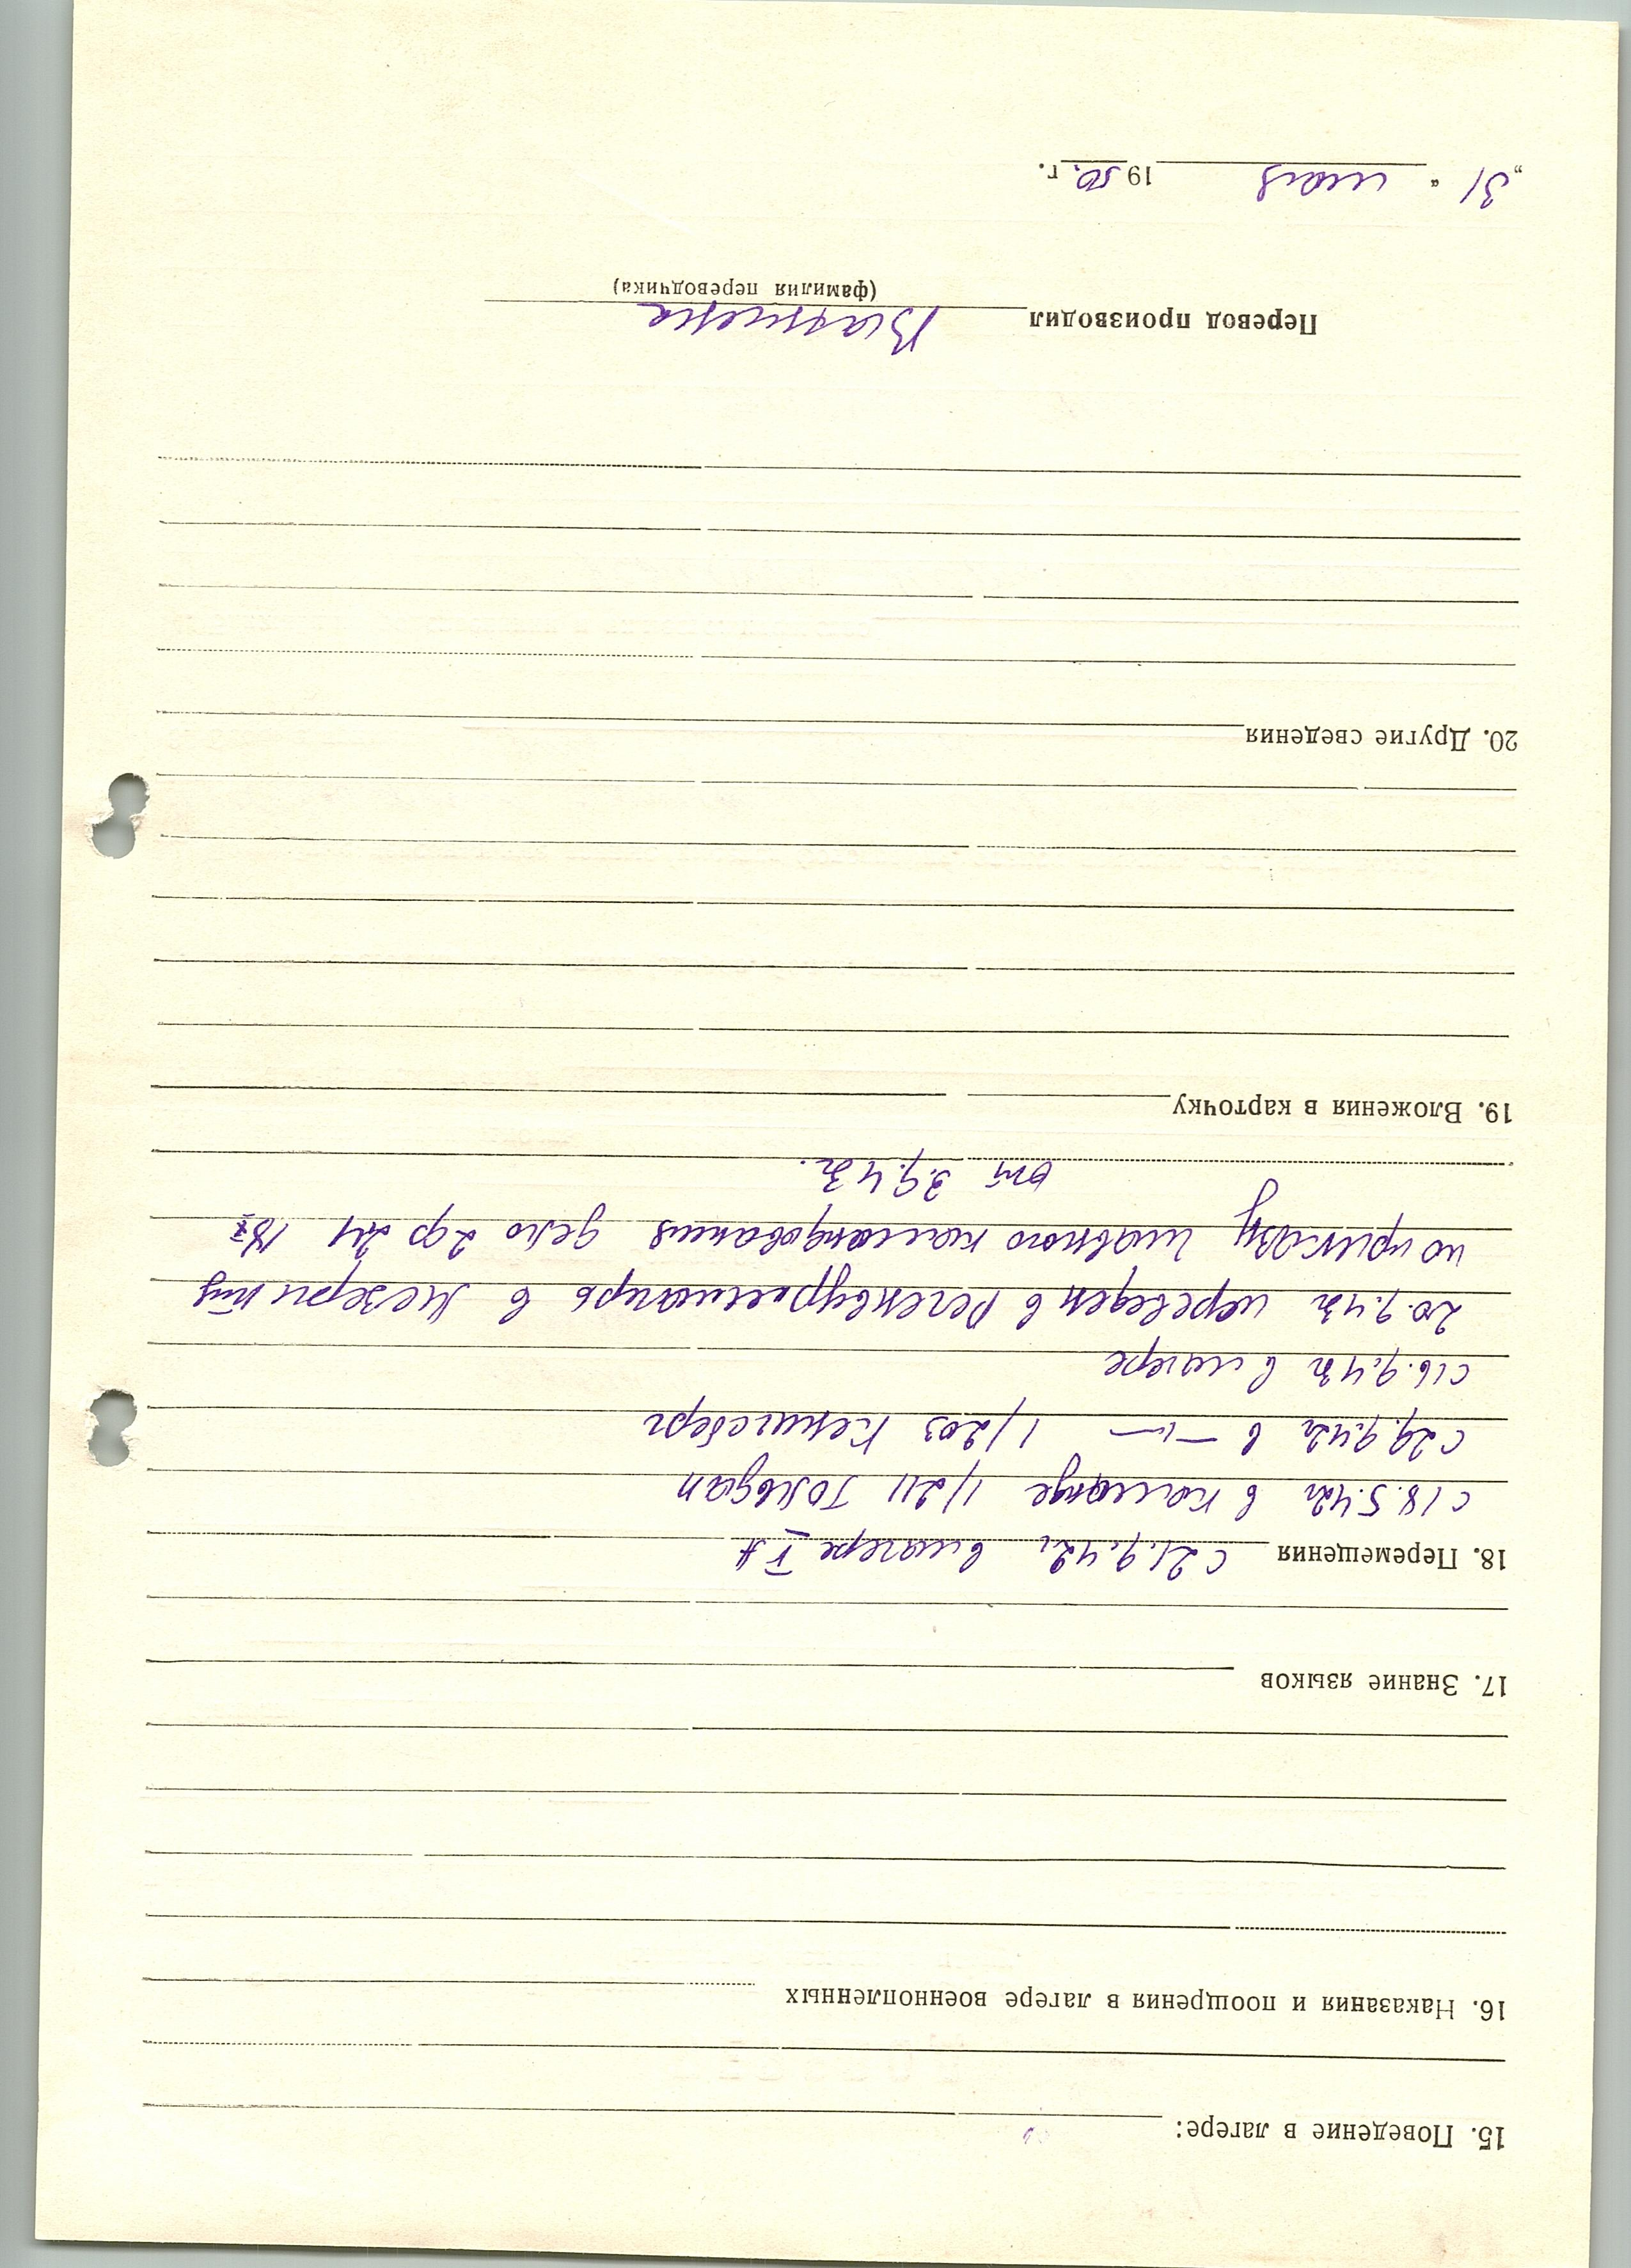 15. Поведение в лагере:
16. Наказания и поощрения в лагере военнопленных
17. Знание языков
18. Перемещения с 21.9.42г в лагере
с 18.5.42г в команде 1/211 Гольдап
с 29.9.42г в —"— 1/203 Кенигсберг
с 16.9.43г в лагере
20.9.43г переведен в
по приказу главного командования дело
от 3.9.43г.
19. Вложения в карточку
20. Другие сведения
Перевод производил
(фамилия переводчика)
„31“ мая 1950. г.